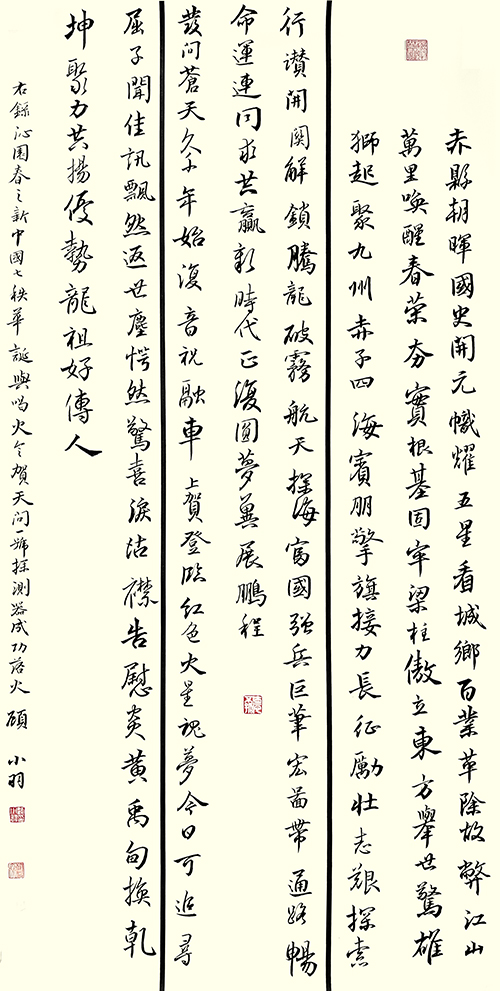 赤縣朝暉國史開元幟耀五星看城鄉百業革除故弊江山
萬里喚醒春榮夯實根基固牢梁柱傲立東方舉世驚雄
獅起聚九州赤子四海賓朋擎旗接力長征勵壯志艱探索
行讚開關解鎖騰龍破霧航天探海富國強兵巨筆宏啚帶通路暢
命運連同求共贏新時代正復圓夢冀展鵬程
發問蒼天久千年始復音祝融車上賀登臨紅色火星魂夢今日可追尋
屈子聞佳訊飄然返世塵愕然驚喜淚沾襟告慰炎黃禹甸換乾
坤聚力共揚優勢龍祖好傳人
右錄沁園春之新中國七秩華誕與喝火令賀天問一號探測器成功落火 碩 小羽